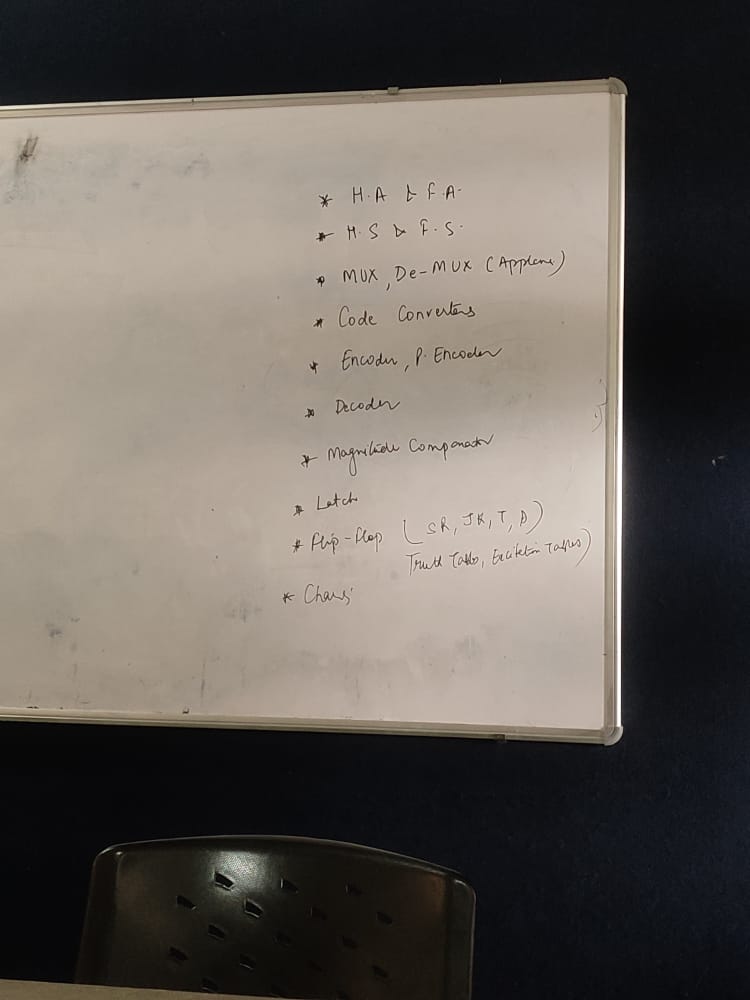 * H.A & F.A.
* H.S & F.S.
* MUX, De-MUX (Applens.)
* Code Converters
* Encoder, P. Encoder
* Decoder
* Magnitude Comparator
* Latch
* Flip-flop (SR, JK, T, D)
Truth Tables, Excitation Tables)
*